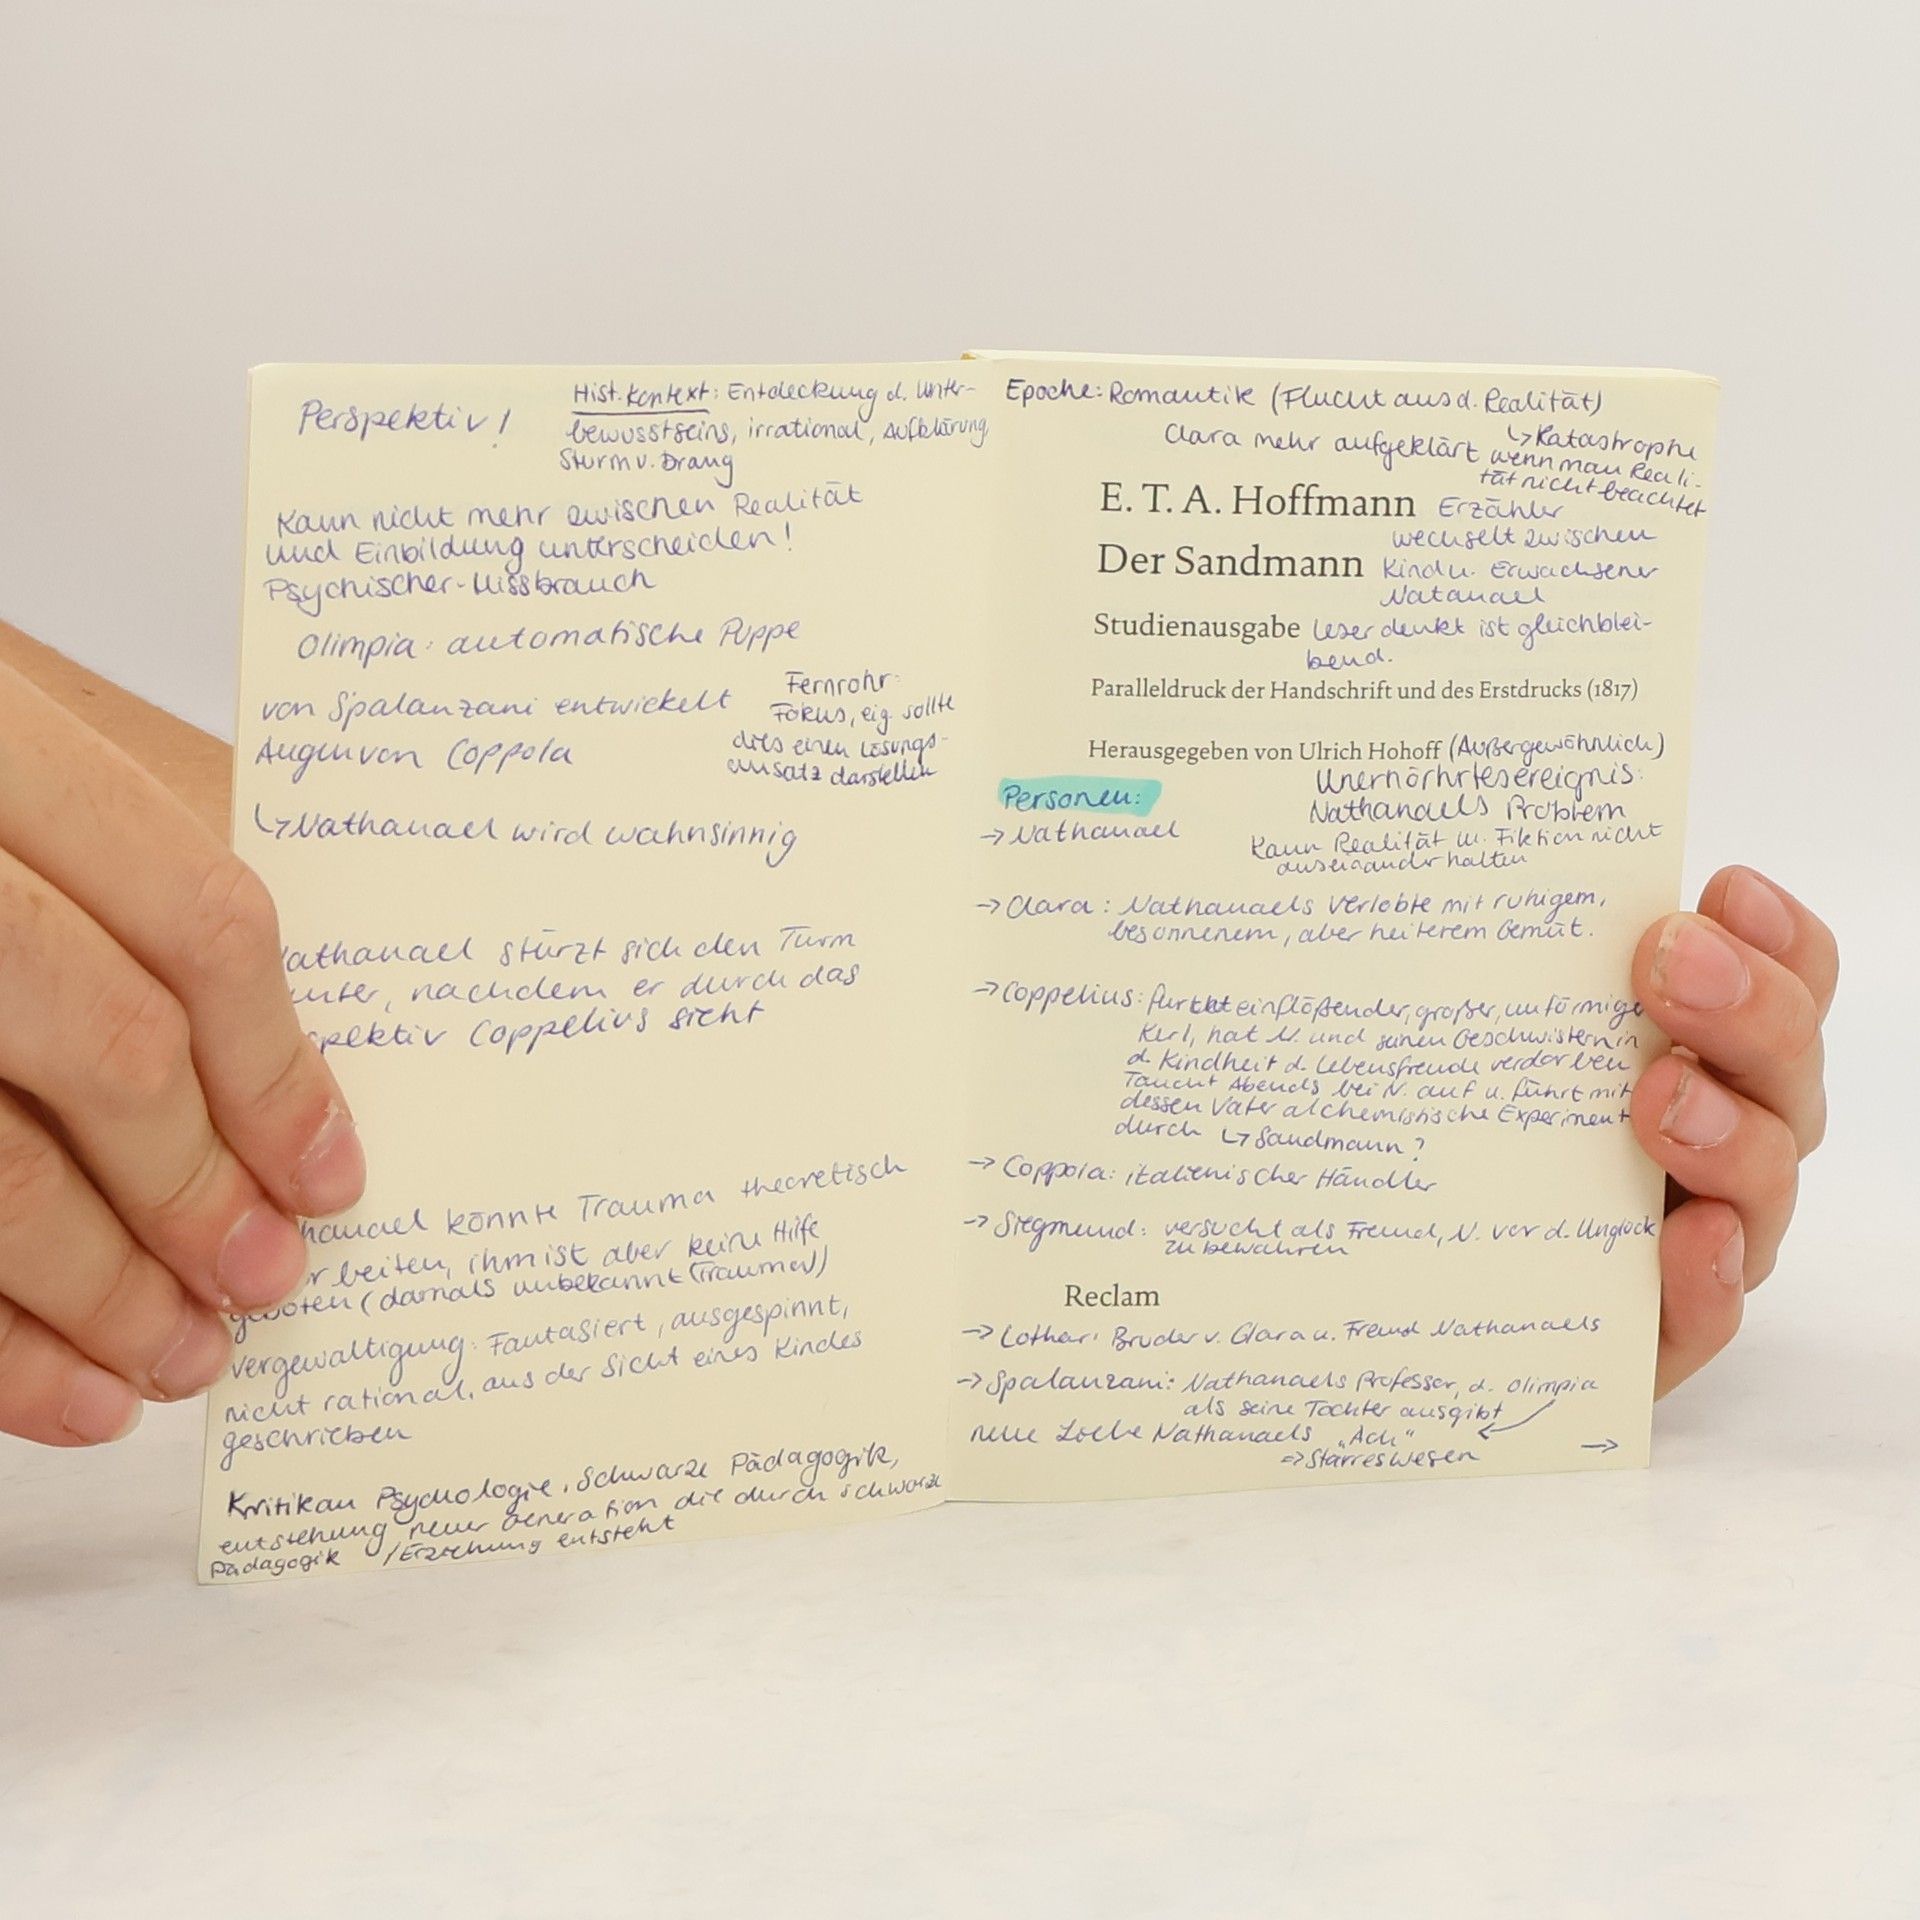 Perspektiv!
Hist. Kontext: Entdeckung d. Unter-
bewusstseins, irrational, Aufklärung
Sturm u. Drang
Kann nicht mehr zwischen Realität
und Einbildung unterscheiden!
Psychischer-Missbrauch
Olimpia: automatische Puppe
von Spalanzani entwickelt
Augen von Coppola
Fernrohr:
Fokus, eig. sollte
dies einen Lösungs-
ansatz darstellen
↳ Nathanael wird wahnsinnig
athanael stürzt sich den Turm
unter, nachdem er durch das
spektiv Coppelius sieht
hanael könnte Trauma theoretisch
rbeiten, ihm ist aber keine Hilfe
geboten (damals unbekannt (Trauma))
Vergewaltigung: Fantasiert, ausgespinnt,
nicht rational, aus der Sicht eines Kindes
geschrieben
Kritik an Psychologie, Schwarze Pädagogik,
entstehung neuer Generation die durch schwarze
Pädagogik /Erziehung entsteht
Epoche: Romantik (Flucht aus d. Realität)
Clara mehr aufgeklärt
↳ Katastrophe
wenn man Reali-
tät nicht beachtet
E. T. A. Hoffmann
Der Sandmann
Erzähler
wechselt zwischen
Kind u. Erwachsener
Natanael
Studienausgabe
Leser denkt ist gleichblei-
bend.
Paralleldruck der Handschrift und des Erstdrucks (1817)
Herausgegeben von Ulrich Hohoff
(Außergewöhnlich)
Unerhörhrtesereignis:
Nathanaels Problem
Kann Realität u. Fiktion nicht
auseinander halten
Personen:
→ Nathanael
→ Clara: Nathanaels Verlobte mit ruhigem,
besonnenem, aber heiterem Gemüt.
→ Coppelius: furchteinflößender, großer, unförmiger
Kerl, hat N. und seinen Geschwistern in
d. Kindheit d. Lebensfreude verdorben
Taucht Abends bei N. auf u. führt mit
dessen Vater alchemistische Experiment
durch ↳ Sandmann?
→ Coppola: italienischer Händler
→ Siegmund: versucht als Freund, N. vor d. Unglück
zu bewahren
Reclam
→ Lothar: Bruder v. Clara u. Freund Nathanaels
→ Spalanzani: Nathanaels Professor, d. Olimpia
als seine Tochter ausgibt
neue Liebe Nathanaels „Ach“
⇒ Starres Wesen
→